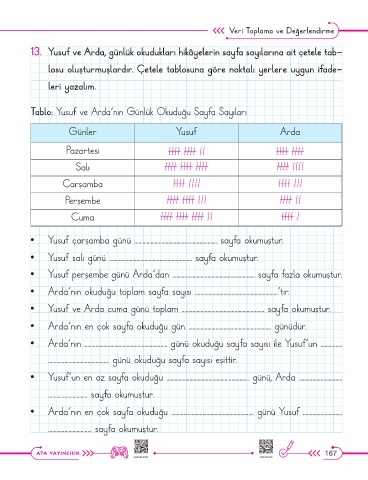 Veri Toplama ve Değerlendirme
13. Yusuf ve Arda, günlük okudukları hikâyelerin sayfa sayılarına ait çetele tab-
losu oluşturmuşlardır. Çetele tablosuna göre noktalı yerlere uygun ifade-
leri yazalım.
Tablo: Yusuf ve Arda'nın Günlük Okuduğu Sayfa Sayıları
Günler Yusuf Arda
Pazartesi
Salı
Çarşamba
Perşembe
Cuma
• Yusuf çarşamba günü ........ sayfa okumuştur.
• Yusuf salı günü ........ sayfa okumuştur.
• Yusuf perşembe günü Arda'dan ........ sayfa fazla okumuştur.
• Arda'nın okuduğu toplam sayfa sayısı ........'tır.
• Yusuf ve Arda cuma günü toplam ........ sayfa okumuştur.
• Arda'nın en çok sayfa okuduğu gün ........ günüdür.
• Arda'nın ........ günü okuduğu sayfa sayısı ile Yusuf'un ........
........ günü okuduğu sayfa sayısı eşittir.
• Yusuf'un en az sayfa okuduğu ........ günü, Arda ........
........ sayfa okumuştur.
• Arda'nın en çok sayfa okuduğu ........ günü Yusuf ........
........ sayfa okumuştur.
ATA YAYINCILIK 167